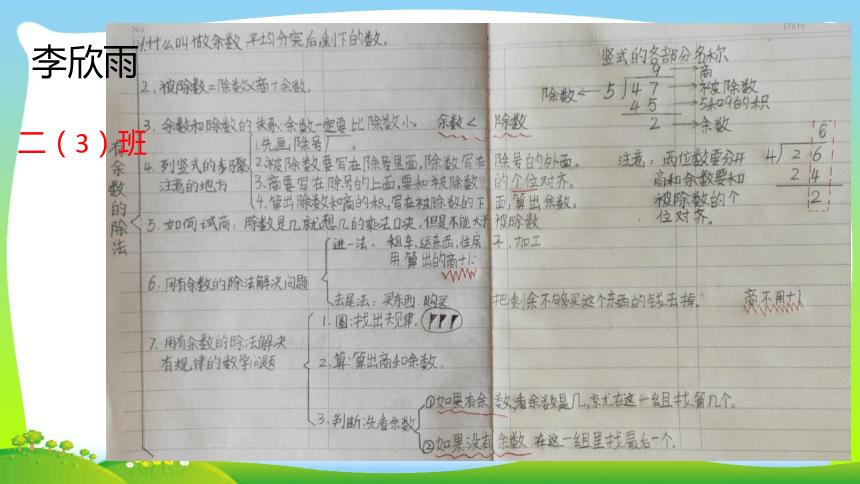 No
Date
李欣雨
二（3）班
有余数的除法
1.什么叫做余数 平均分完后,剩下的数。
2.被除数=除数×商+余数.
3.余数和除数的关系:余数一定要比除数小。 余数< 除数
4.列竖式的步骤 注意的地方
1.先画除号 。
2.被除数要写在除号里面,除数写在除号的外面。
3.商要写在除号的上面,要和被除数的个位对齐。
4.算出除数和商的积,写在被除数的下面,算出余数。
5.如何试商:除数是几就想几的乘法口决,但是不能大于被除数
6.用有余数的除法解决问题
进一法。 租车、运东西、住房子、加工
用算出的商+1
去尾法:买东西.购买 把剩余不够买这个东西的钱去掉. 商不用+1
7.用有余数的除法解决
有规律的数学问题
1.圈:找出规律。
2.算:算出商和余数.
3.判断:先看余数
①如果有余数,看余数是几,就在这一组找第几个。
②如果没有余数 在这一组里找最后一个。
竖式的各部分名称
9 →商
除数← 5 4 7 →被除数
4 5 →5和9的积
2 →余数
注意:两位数要分开
商和余数要和
被除数的个
位对齐。
6
4 2 6
2 4
2